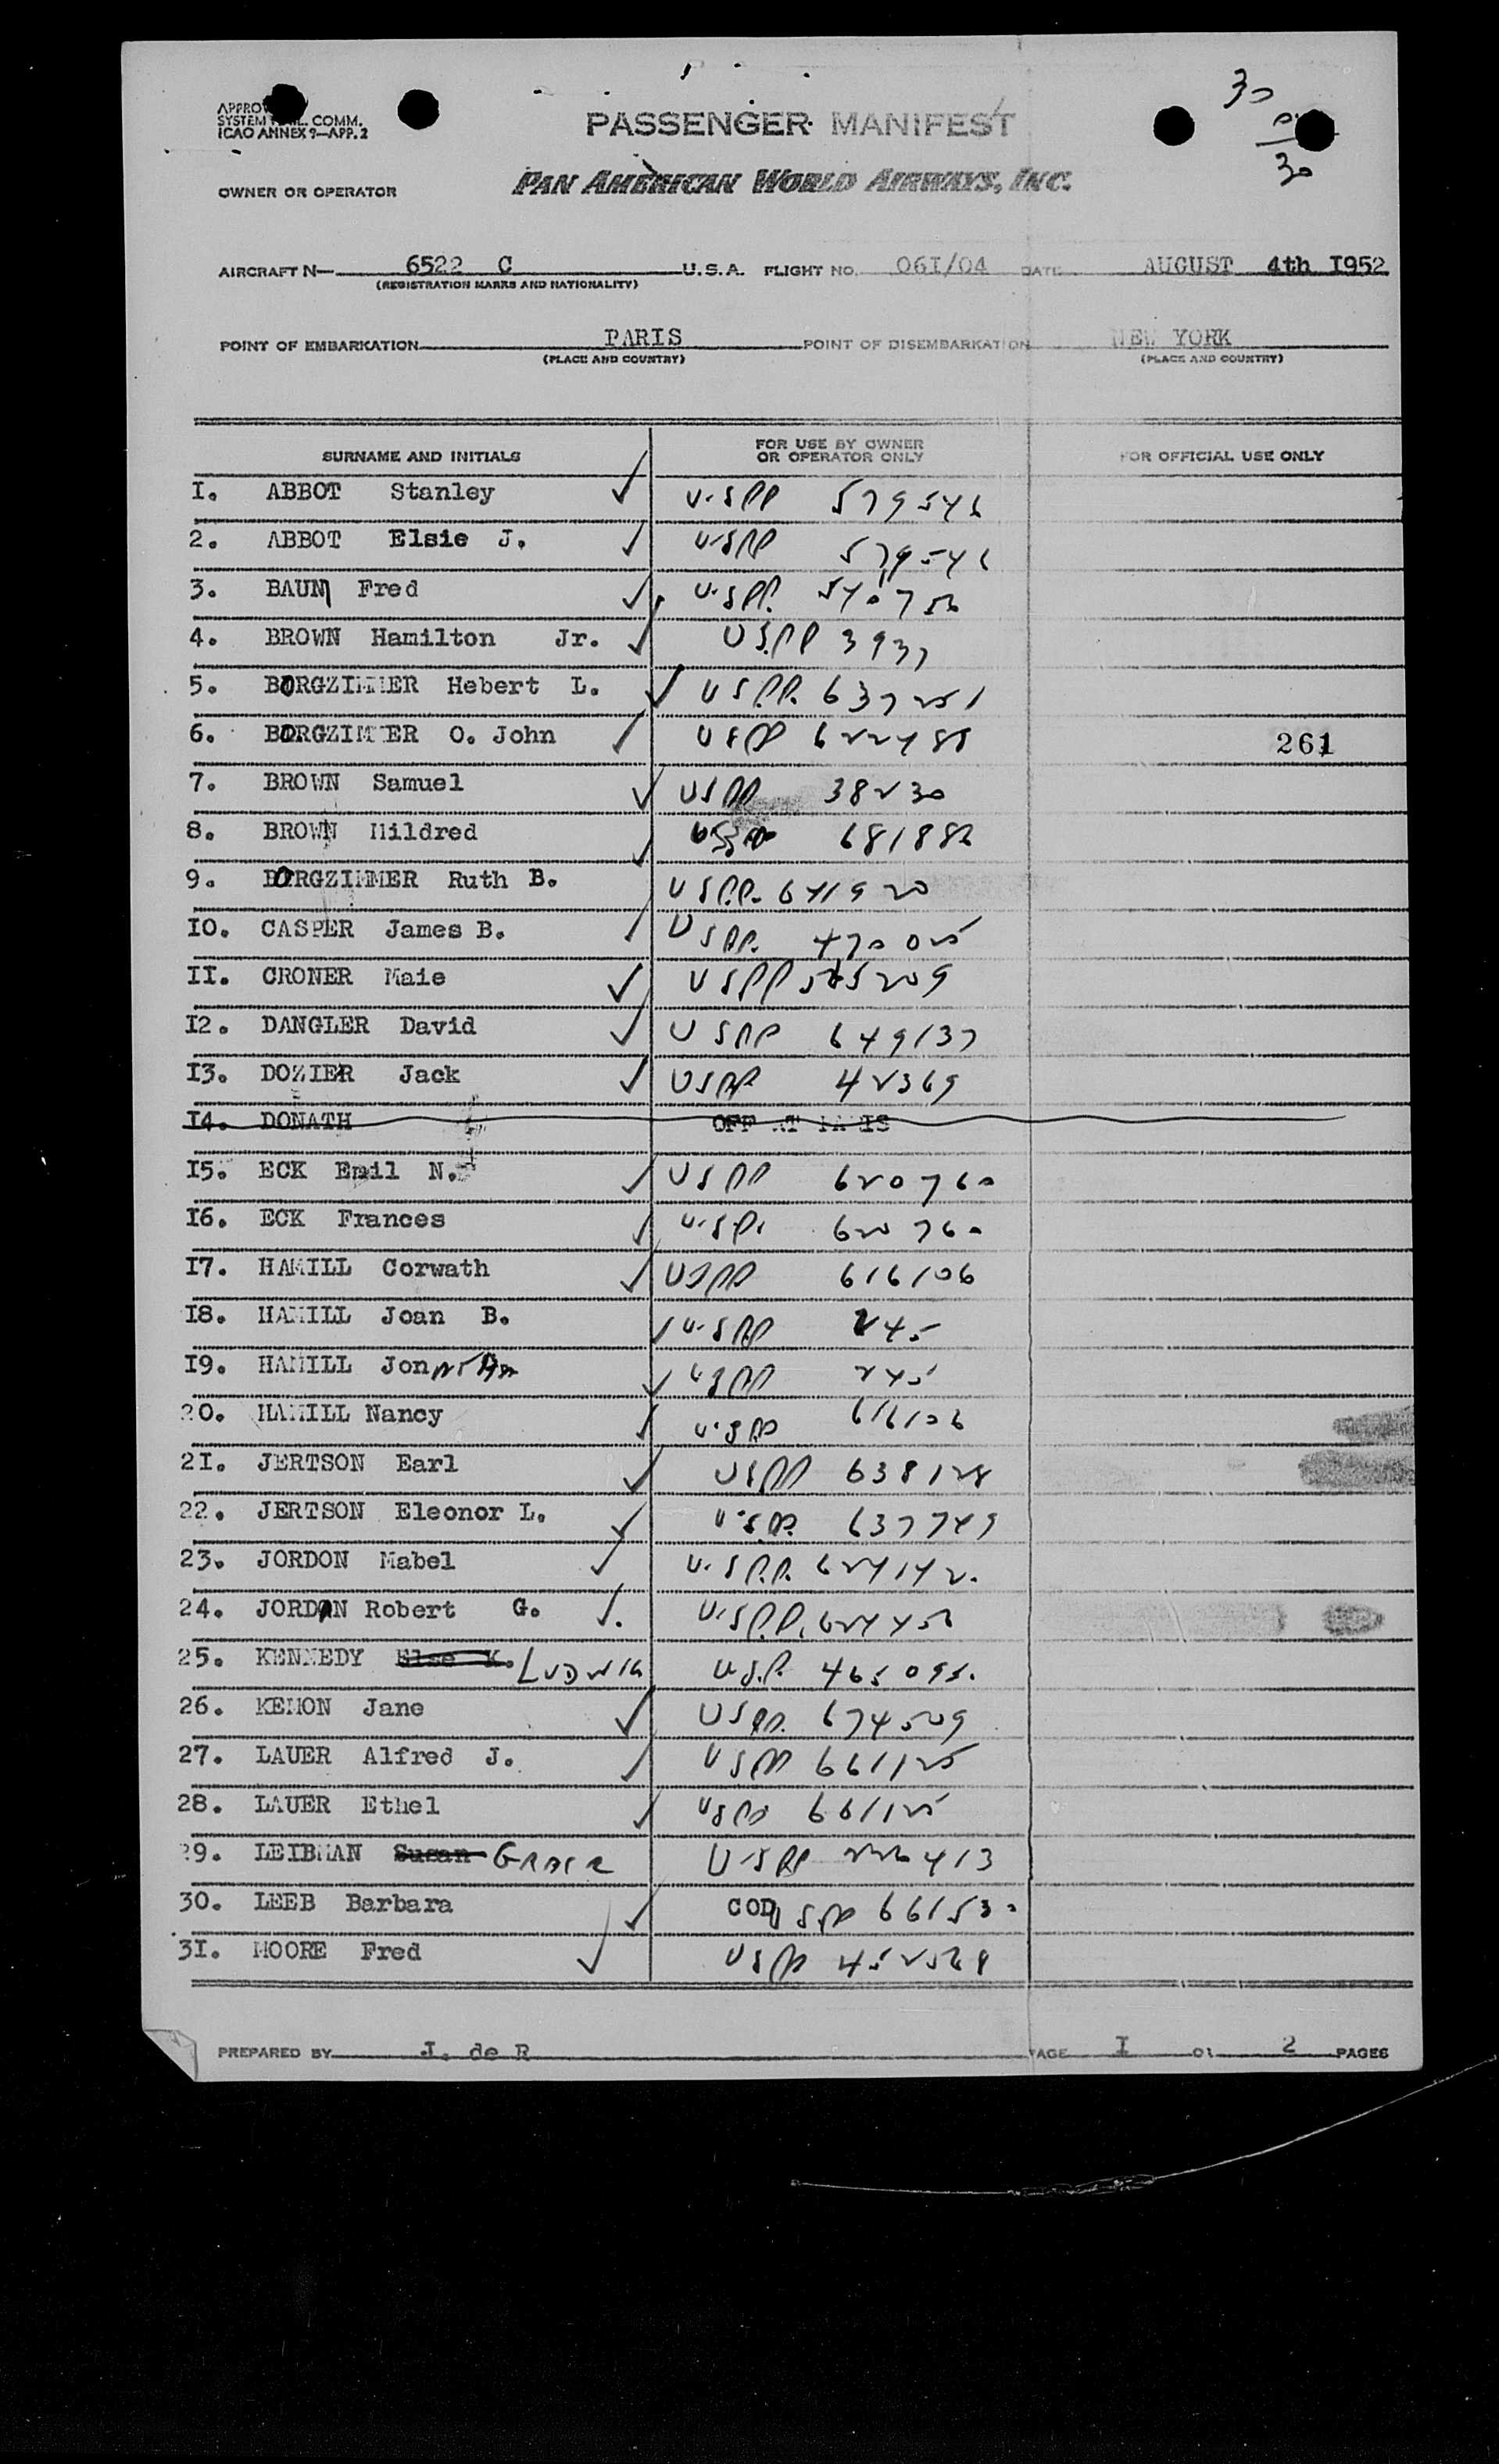 30
0
30
SYSTEM COMM.
ICAO ANNEX 9—APP. 2
PASSENGER MANIFEST
OWNER OR OPERATOR PAN AMERICAN WORLD AIRWAYS, INC.
AIRCRAFT N— 6522 C U.S.A. FLIGHT NO. 06I/04 DATE AUGUST 4th I952
(REGISTRATION MARKS AND NATIONALITY)
POINT OF EMBARKATION PARIS POINT OF DISEMBARKATION NEW YORK
(PLACE AND COUNTRY) (PLACE AND COUNTRY)
SURNAME AND INITIALS FOR USE BY OWNER OR OPERATOR ONLY FOR OFFICIAL USE ONLY
I. ABBOT Stanley U.SPP 579546
2. ABBOT Elsie J. USPP 579546
3. BAUM Fred U.SPP. 540756
4. BROWN Hamilton Jr. USPP 3937
5. BORGZIMMER Hebert L. USPP. 637251
6. BORGZIMMER O. John USPP 622488
7. BROWN Samuel USPP 38230
8. BROWN Mildred USPP 681886
9. BORGZIMMER Ruth B. USPP. 641920
IO. CASPER James B. USPP. 470025
II. CRONER Maie USPP 565209
I2. DANGLER David USPP 649137
I3. DOZIER Jack USPP 42369
I4. DONATH OFF AT PARIS
I5. ECK Emil N. USPP 620760
I6. ECK Frances U.SP. 620760
I7. HAMILL Corwath USPP 616106
I8. HAMILL Joan B. U.SPP 245
I9. HAMILL Jon USPP 245
20. HAMILL Nancy U.SPP 616106
2I. JERTSON Earl USPP 638128
22. JERTSON Eleonor L. U.S.P. 637749
23. JORDON Mabel U.SP.P. 624142.
24. JORDAN Robert G. U.S.P.P. 624456
25. KENNEDY Else K. LUDWIG U.S.P. 465095.
26. KEMON Jane USPP. 674509
27. LAUER Alfred J. USPP 661125
28. LAUER Ethel USPP 661125
29. LEIBMAN Susan GRACE U.SPP 226413
30. LEEB Barbara COD USPP 661530
3I. MOORE Fred USPP 452568
261
PREPARED BY J. de R PAGE I OF 2 PAGES